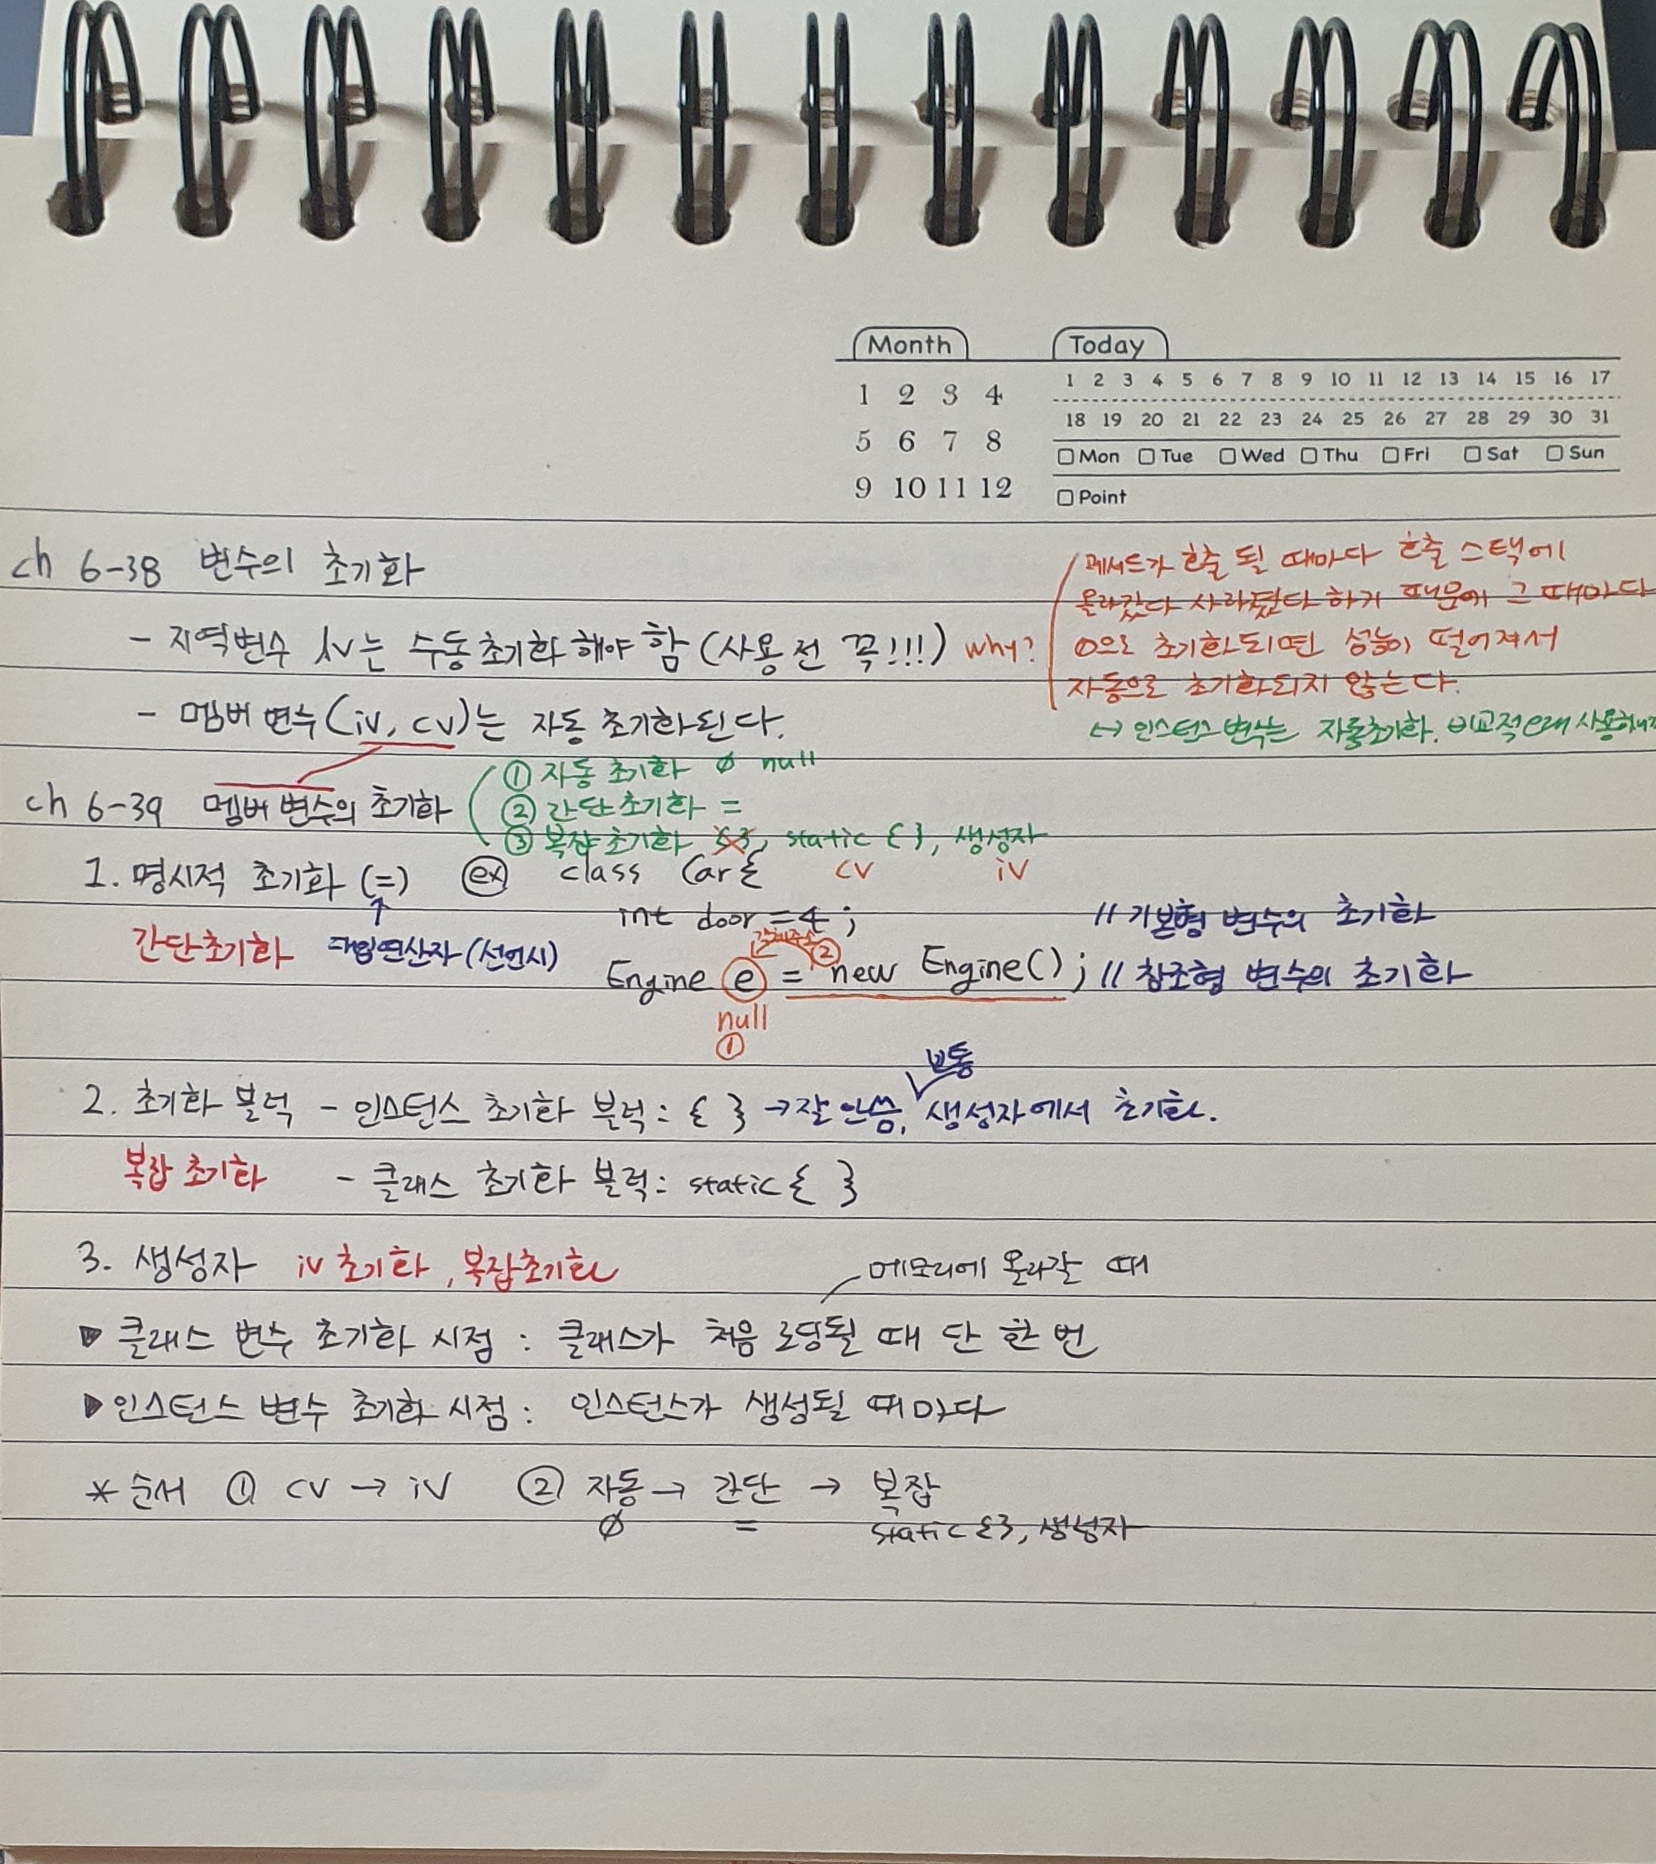 Month Today
1 2 3 4
5 6 7 8
9 10 11 12
1 2 3 4 5 6 7 8 9 10 11 12 13 14 15 16 17
18 19 20 21 22 23 24 25 26 27 28 29 30 31
Mon Tue Wed Thu Fri Sat Sun
Point
ch 6-38 변수의 초기화
- 지역변수 lv는 수동초기화 해야 함 (사용 전 꼭!!!) why?
메서드가 호출 될 때마다 호출 스택에
올라갔다 사라졌다 하기 때문에 그 때마다
0으로 초기화되면 성능이 떨어져서
자동으로 초기화되지 않는다.
↔ 인스턴스변수는 자동초기화. 비교적오래 사용하니까
- 멤버 변수(iv, cv)는 자동 초기화된다.
ch 6-39 멤버 변수의 초기화
① 자동 초기화 0 null
② 간단초기화 =
③ 복잡 초기화 {}, static { }, 생성자
cv iv
1. 명시적 초기화 (=) ex class Car{
int door = 4; // 기본형 변수의 초기화
간단초기화 대입연산자(선언시)
객체주소 ②
Engine e = new Engine(); // 참조형 변수의 초기화
null
①
보통
2. 초기화 블럭 - 인스턴스 초기화 블럭: { } → 잘 안씀, 생성자에서 초기화.
복잡 초기화 - 클래스 초기화 블럭: static { }
3. 생성자 iv 초기화, 복잡초기화
메모리에 올라갈 때
▶ 클래스 변수 초기화 시점 : 클래스가 처음 로딩될 때 단 한 번
▶ 인스턴스 변수 초기화 시점 : 인스턴스가 생성될 때마다
* 순서 ① cv → iv ② 자동 → 간단 → 복잡
0 = static {}, 생성자